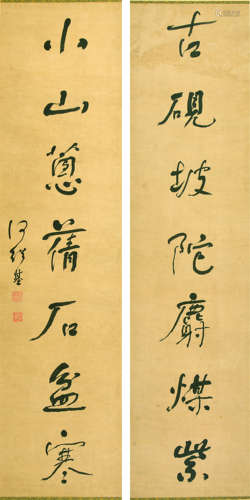 古砚坡陀麝煤紫
小山蔥蒨石盆寒
何紹基